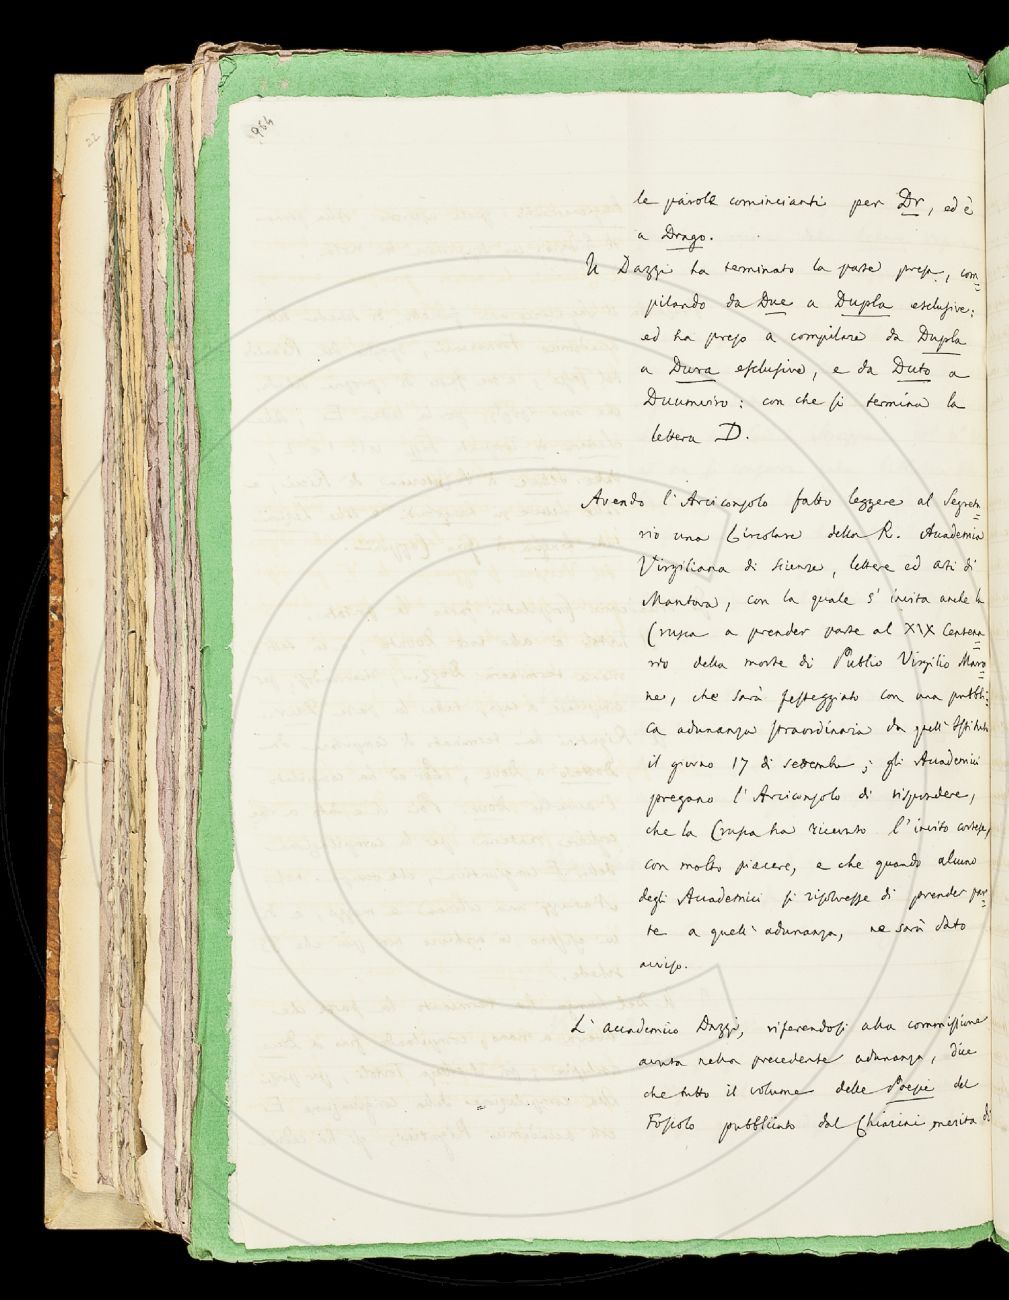 954
22
le parole comincianti per Dr, ed è
a Drago.
Il Dazzi ha terminato la parte presa, com=
pilando da Due a Dupla esclusive:
ed ha preso a compilare da Dupla
a Dura esclusive, e da Duto a
Duumviro: con che si termina la
lettera D.
Avendo l'Arciconsolo fatto leggere al Segreta=
rio una Circolare della R. Accademia
Virgiliana di Scienze, lettere ed arti di
Mantova, con la quale s'invita anche la
Crusca a prender parte al XIX Centena=
rio della morte di Publio Virgilio Maro=
ne, che sarà festeggiato con una pubbli=
ca adunanza straordinaria da quell'Istituto
il giorno 17 di settembre; gli Accademici
pregano l'Arciconsolo di rispondere,
che la Crusca ha ricevuto l'invito cortese,
con molto piacere, e che quando alcuno
degli Accademici si risolvesse di prender par=
te a quell'adunanza, ne sarà dato
avviso.
L'accademico Dazzi, riferendosi alla commissione
avuta nella precedente adunanza, dice
che tutto il volume delle Poesie del
Foscolo pubblicato dal Chiarini merita di